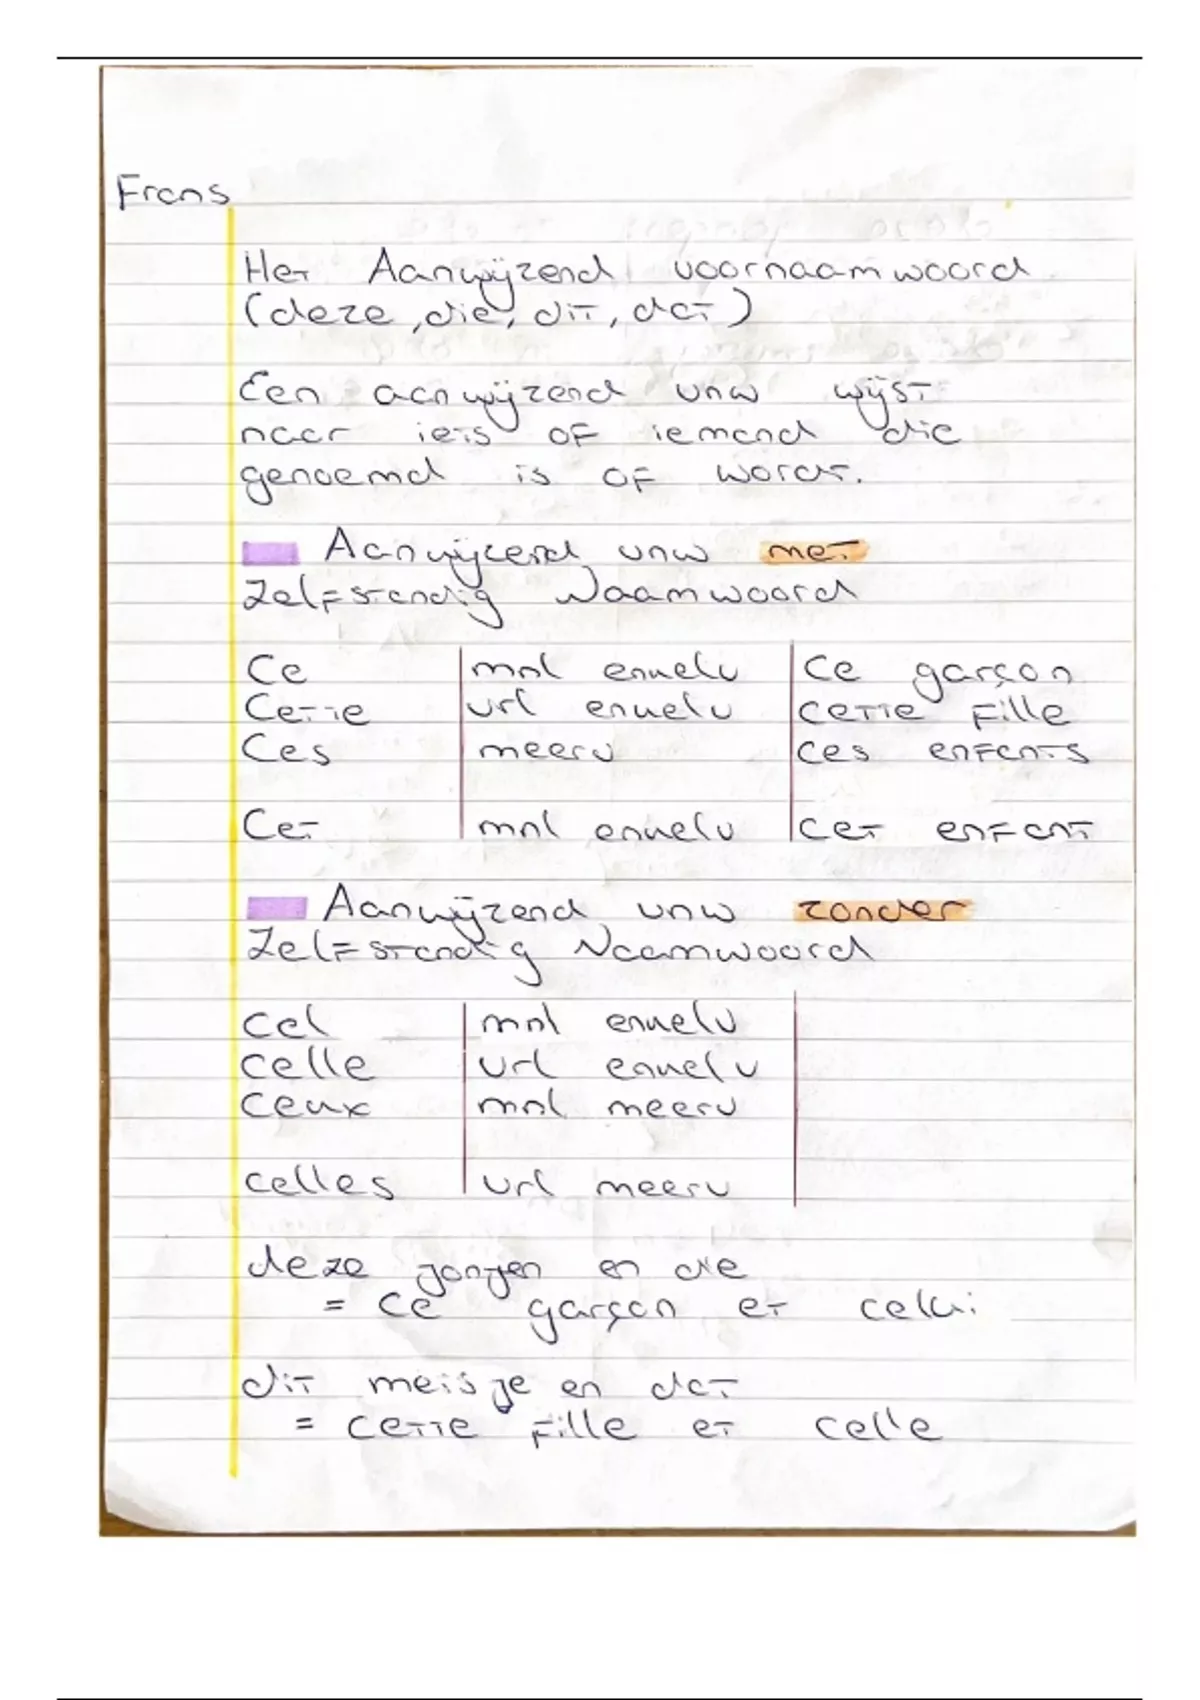 Frans
Het Aanwijzend voornaamwoord
(deze, die, dit, dat)
Een aanwijzend vnw wijst
naar iets of iemand die
genoemd is of wordt.
Aanwijzend vnw met
Zelfstandig Naamwoord
Ce mnl enkelv ce garçon
Cette vrl enkelv cette fille
Ces meerv ces enfants
Cet mnl enkelv cet enfant
Aanwijzend vnw zonder
Zelfstandig Naamwoord
cel mnl enkelv
celle vrl enkelv
ceux mnl meerv
celles vrl meerv
deze jongen en die
= ce garçon et celui
dit meisje en dat
= cette fille et celle